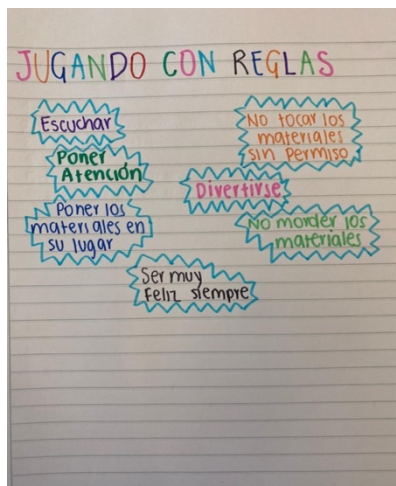 JUGANDO CON REGLAS
Escuchar
Poner
Atención
Poner los
materiales en
su lugar
No tocar los
materiales
sin permiso
Divertirse
No morder los
materiales
Ser muy
Feliz siempre